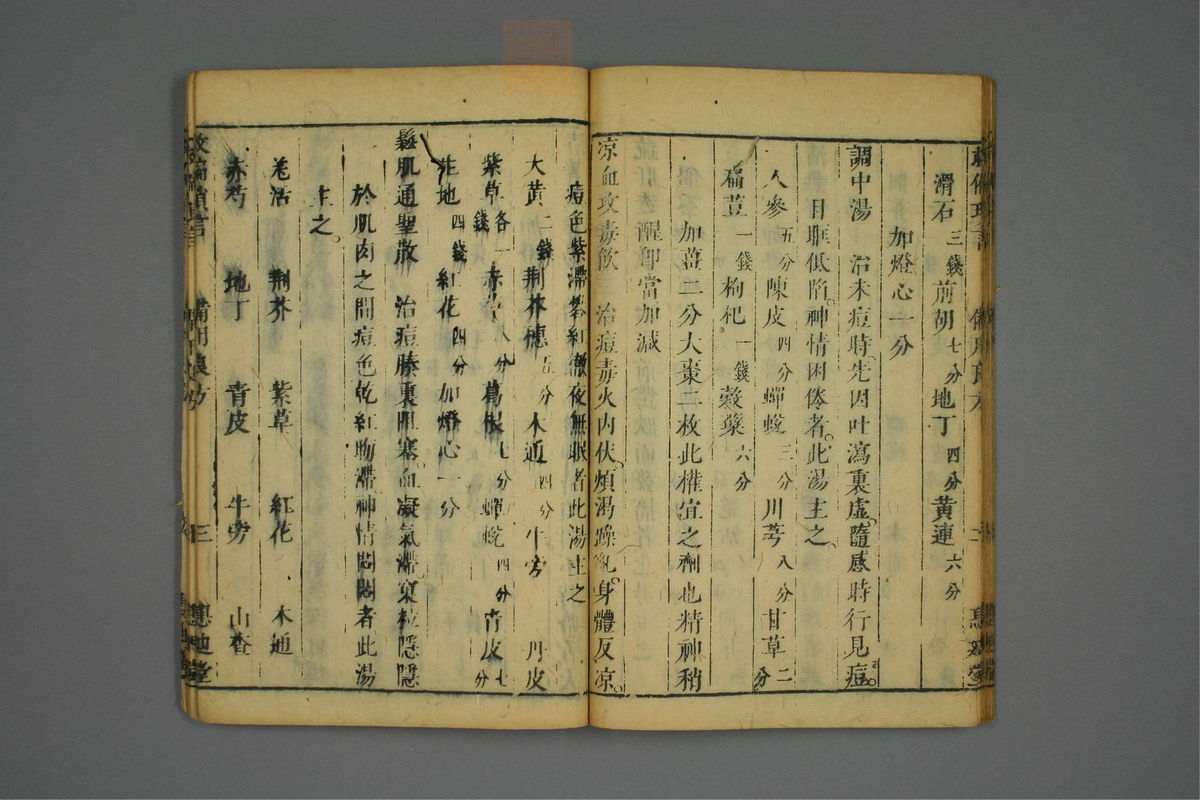 滑石三錢前胡七分地丁四分黃連六分
加燈心一分
調中湯 治未痘時先因吐瀉裏虛隨感時行見痘
目眶低陷神情困倦者此湯主之
人參五分陳皮四分蟬蛻三分川芎八分甘草二分
扁荳一錢枸杞一錢穀蘗六分
加薑二分大棗二枚此權宜之劑也精神稍
醒卽當加減
凉血攻毒飲 治痘毒火內伏煩渴躁亂身體反凉
痘色紫滯 紅徹夜無眠者此湯主之
大黃二錢荆芥穗五分木通四分牛蒡 丹皮
紫草各一錢赤芍八分葛根七分蟬蛻四分青皮七分
生地四錢紅花四分加燈心一分
鬆肌通聖散 治痘腠裏阻塞血凝氣滯窠粒隱隱
於肌肉之間痘色乾紅 滯神情悶悶者此湯
主之
羌活 荆芥 紫草 紅花 木通
赤芍 地丁 青皮 牛蒡 山查
三